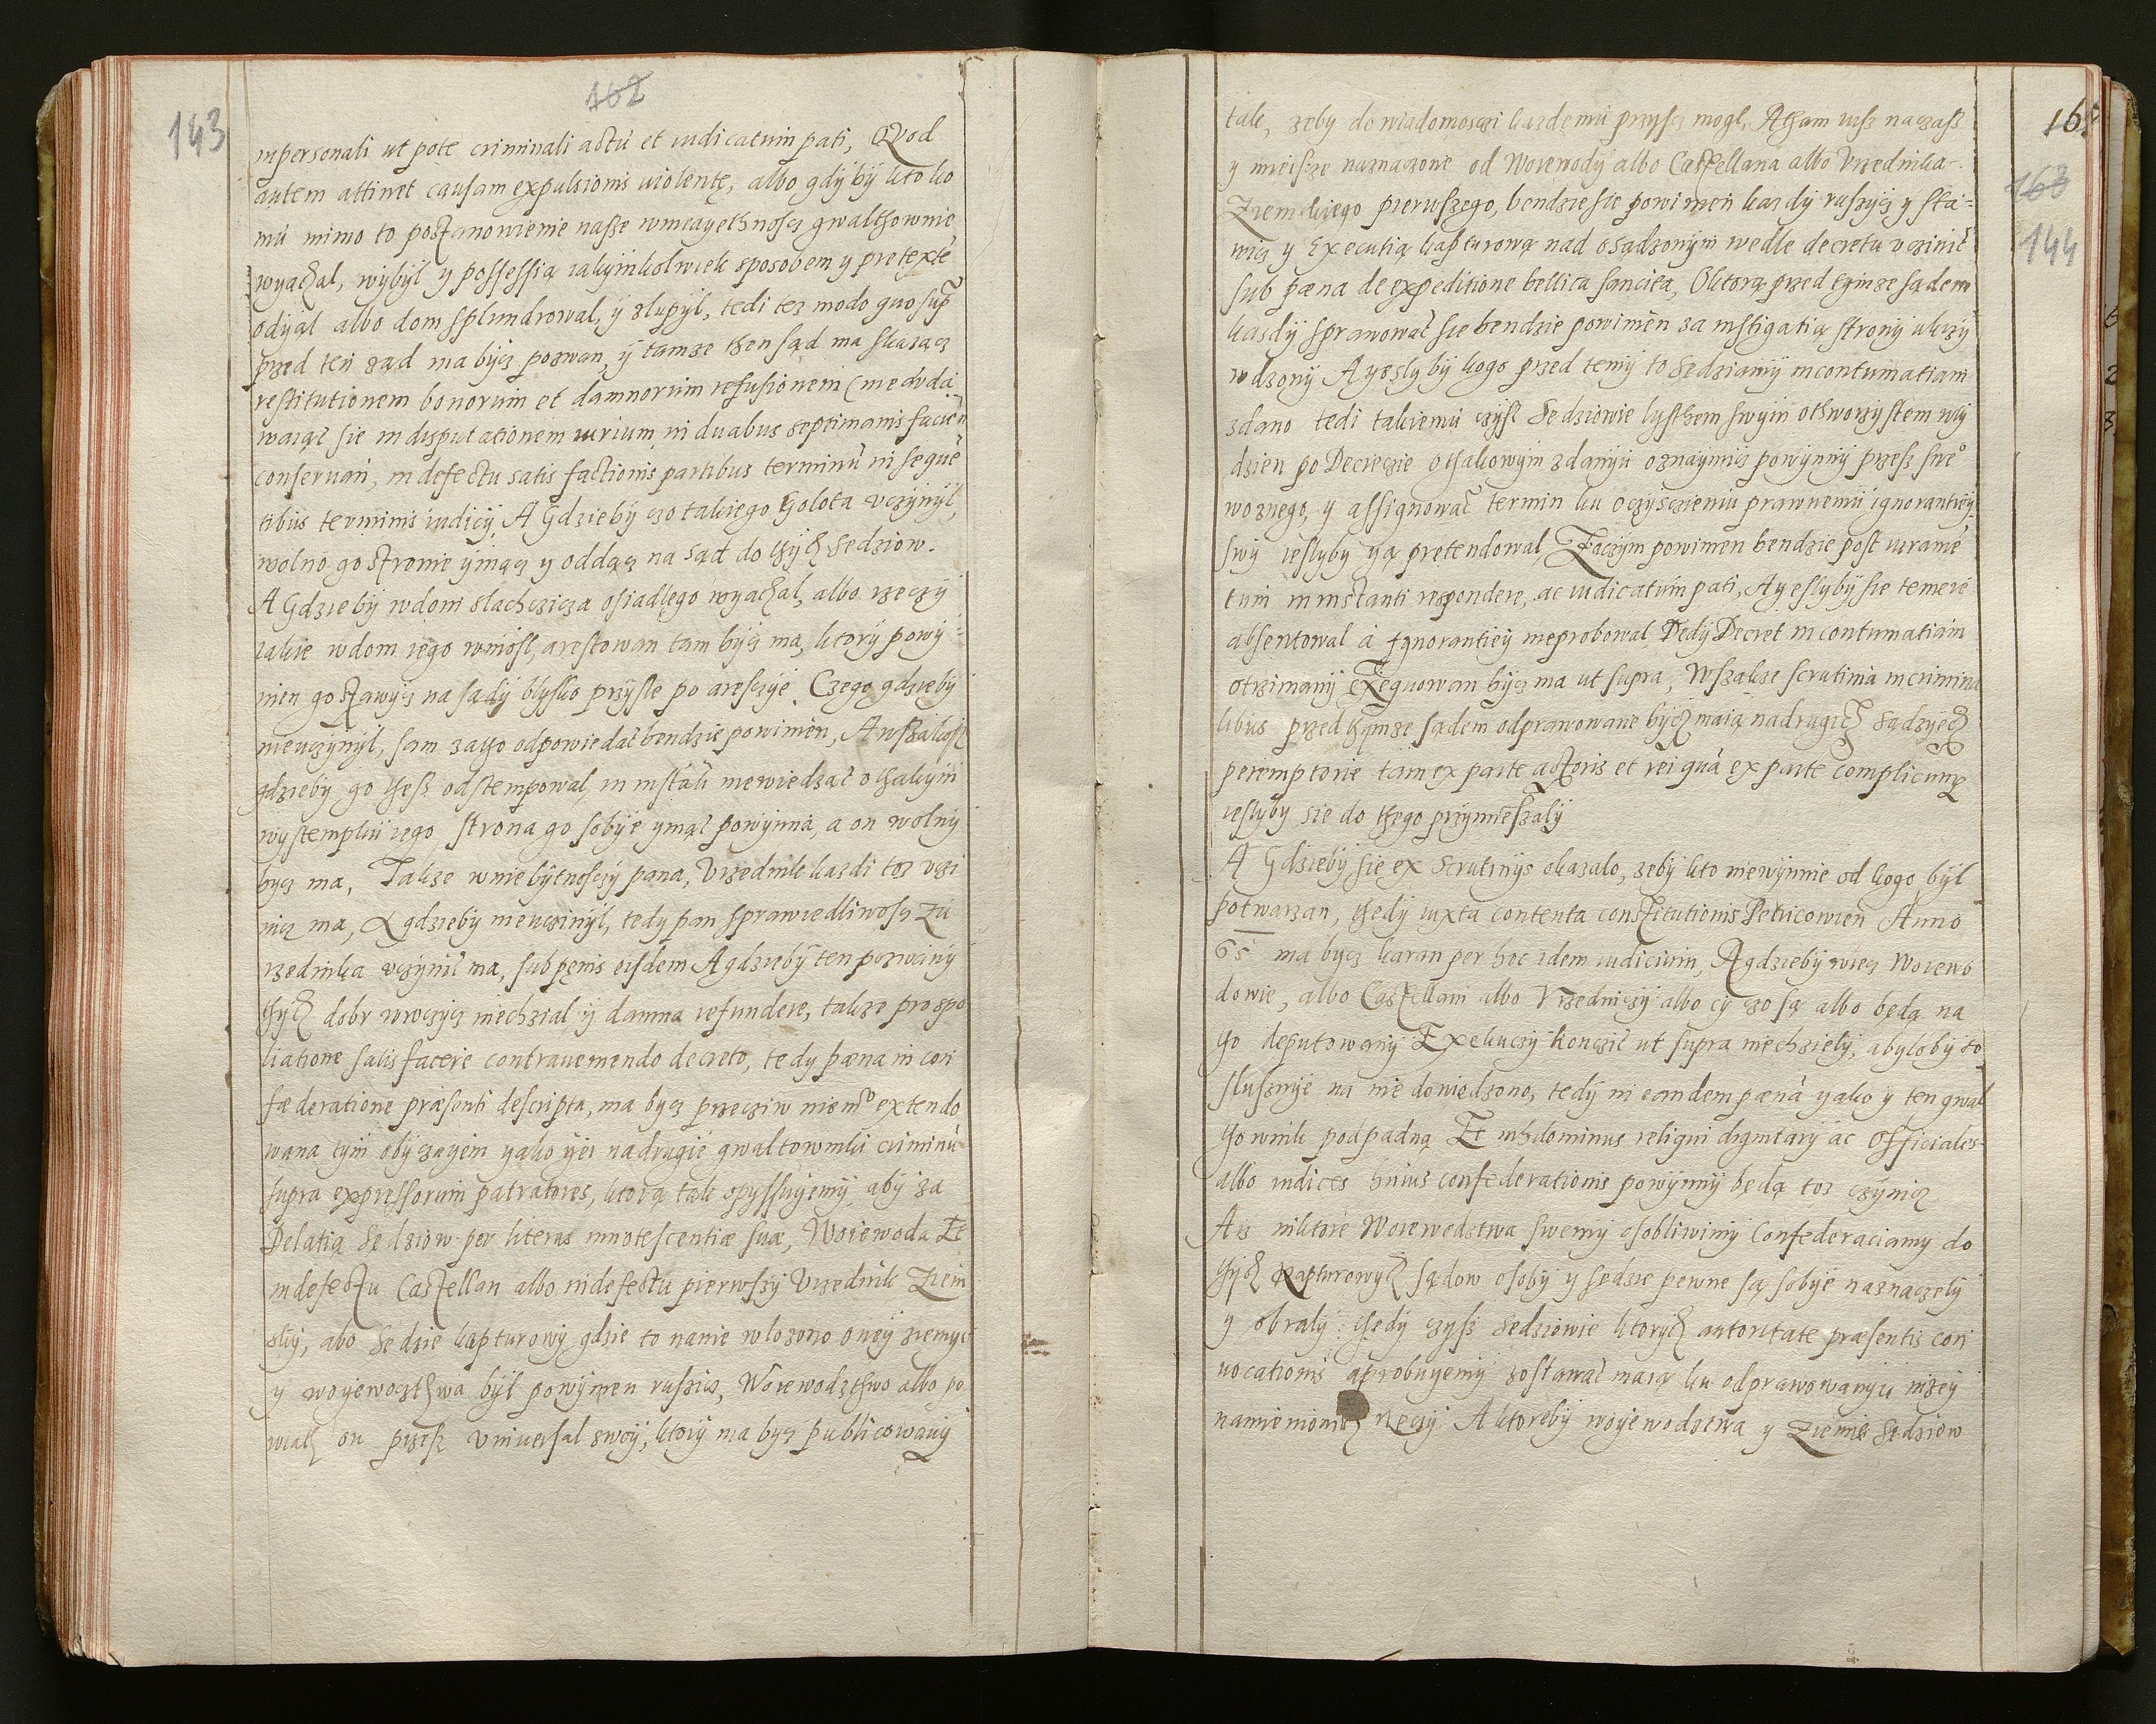 162
143
inpersonali ut pote criminali actu et iudicatum pati, Qvod
autem attinet causam expulsionis violentę, albo gdÿ bÿ kto ko
mu mimo to postanowienie nasze wmaÿethnoscz gwalthownie
wyachal, wÿbÿl y possessią iakÿmkolwiek sposobem y pretextē
odÿąl albo dom splundrowal, ÿ zlupÿl, tedi tez modo quo supra
przed ten sąd ma bÿcz pozwan, ÿ tamze then sąd ma skazacz
restitutionem bonorum et damnorum refusionem (nie wda
waiąc sie in disputationem iurium in duabus septimanis facien
conseruari, in defectu satis factionis partibus terminū in sequē
tibus terminis iudicÿ A Gdzie bÿ czo takiego Golota vczÿnÿl,
wolno go stronie ÿmącz y oddącz na sąd do thÿch Sedziow.
A Gdzie bÿ wdom slachczicza osiadlego wyachal, albo rzeczÿ
iakie wdom iego wniosl, arestowan tam bÿcz ma, ktorÿ powÿ-
nien go stawÿcz na sądÿ blÿsko przÿsle po aresczÿe. Czego gdzie bÿ
nieuczÿnÿl, sam zatho odpowiedac bendzie powinien, A wszakosz
gdzieby go thesz odstempowal, in instāti niewiedzac o thakÿm
wÿstempku iego strona go sobÿe ÿmac powÿnna, a on wolnÿ
bycz ma, Takze wnie bÿtnosczÿ pana, Vrzednik kazdi toz vczi
nicz ma, A gdzieby nieuczinÿl, tedy pan sprawiedliwoscz Zu
rzednika vczÿnic ma, sub pęnis eisdem A gdzie bÿ ten pozwanÿ
thÿch dobr wroczÿcz niechzial ÿ damna refundere, takze pro spo
liatione satis facere contraueniendo decreto, tedy pæna in con
fæderatione præsenti descripta, ma bycz przecziw niemu extendo
wana tÿm obÿczaÿem yako ÿey nadrugie gwaltowniki criminū
supra expressorum patratores, ktorą tak opÿssuÿemÿ, abÿ za
Delatią Sędziow per literas innotescentiæ suæ, Woiewoda Et
in defectu Castellan albo in defectu pierwszÿ Vrzednik Ziem
skÿ, abo Sedzie kapturowÿ gdzie to nanie wlozono onoÿ ziemÿe
y woÿewocztwa bÿl powÿnien ruszicz, Woiewodzthwo albo po
wiath on przesz Vniuersal swoÿ, ktorÿ ma bycz publicowanÿ
165
163
144
tak, zeby do wiadomosczi kazdemu przyscz mogl, A tham iusz naczasz
y mieisze naznaczone od Woiewodÿ albo Castellana albo Vrzednika
Ziemskiego pierwszego, bendzie sie powinien kazdÿ ruszÿcz y sta-
wicz y Executią kapturową nad osądzonÿm wedle decretu vczinic
sub pæna de expeditione bellica sancita, Oktorą przed tÿmze sądem
kazdÿ sprawowac sie bendzie powinien za instigatią stronÿ vkrzÿ
wdzonÿ A yezly bÿ kogo przed temÿ to Sedziamÿ in contumatiam
zdano tedi takiemu czÿsz Sedziowie lysthem swÿm othworzystem wÿ
dzien po Decrecie o thakowÿm zdanÿu oznaÿmicz powÿnnÿ przesz swe
woznego, y assignowac termin ku oczÿsczieniu prawnemu ignorantiÿ
swÿ iesliby ÿą pretendowal, Zaczÿm powinien bendzie post iuramē
tum in instanti respondere, ac iudicatum pati, A yeslybÿ sie temere
absentowal a Ignorantiey nieprobowal Tedÿ Decret in contumatiam
otrzimanÿ Exequowan bÿcz ma ut supra, Wszakze scrutinia in crimina
libus przed thÿmze sądem odprawowane bÿcz maią nadrugich Sądzÿech
peremptorie tam ex parte actoris et rei quā ex parte complicum
iesliby sie do thego przÿmieszalÿ
A Gdzieby sie ex Scrutinÿs okazalo, zebÿ kto niewÿnnie od kogo bÿl
potwarzan, thedÿ iuxta contenta constitutionis Petricowien Anno
65 ma bycz karan per hoc idem iudicium, A gdzieby wiecz Woiewo
dowie, albo Castellani albo Vrzedniczÿ albo cÿ czo są albo będą na
tho deputowanÿ Exekuczÿ konczic ut supra niechzielÿ, abÿlobÿ to
slusznÿe na nie dowiedzono, tedÿ in eandem pænā yako y ten gwal
thownik podpadną Et nihilominus reliqui dignitarÿ ac Officiales
albo iudices huius confederationis powÿnnÿ będą toz czÿnicz
Aiz niktore Woiewodstwa swemy osobliwimÿ Confederaciamy do
thÿch kapturowÿch sądow osobÿ y sedzie pewne są sobÿe naznaczelÿ
y obralÿ thedÿ czÿsz Sedziowie ktorych autoritate præsentis con
uocationis aprobuÿemÿ zostawac maią ku odprawowanÿu nizeÿ
namienionich rzeczÿ A ktorebÿ woÿewodztwa y Ziemie Sedziow